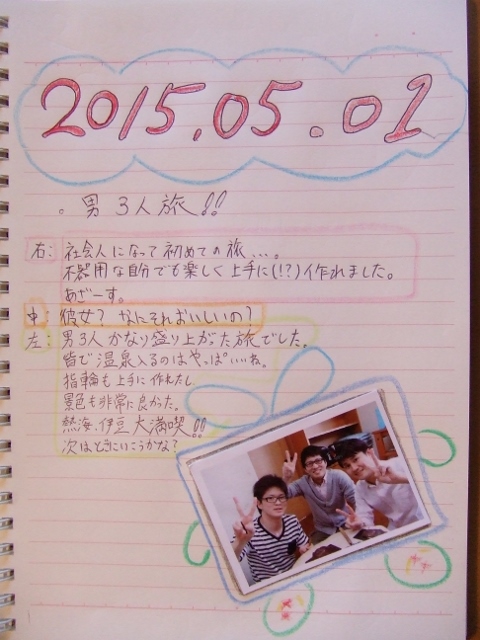 2015.05.02
。男3人旅!!
右: 社会人になって初めての旅...。
不器用な自分でも楽しく上手に(!?)作れました。
あざーす。
中: 彼女? なにそれおいしいの?
左: 男3人かなり盛り上がた旅でした。
皆で温泉入るのはやっぱいいね。
指輪も上手に作れたし
景色も非常に良かった。
熱海、伊豆大満喫!!
次はどこにいこうかな?